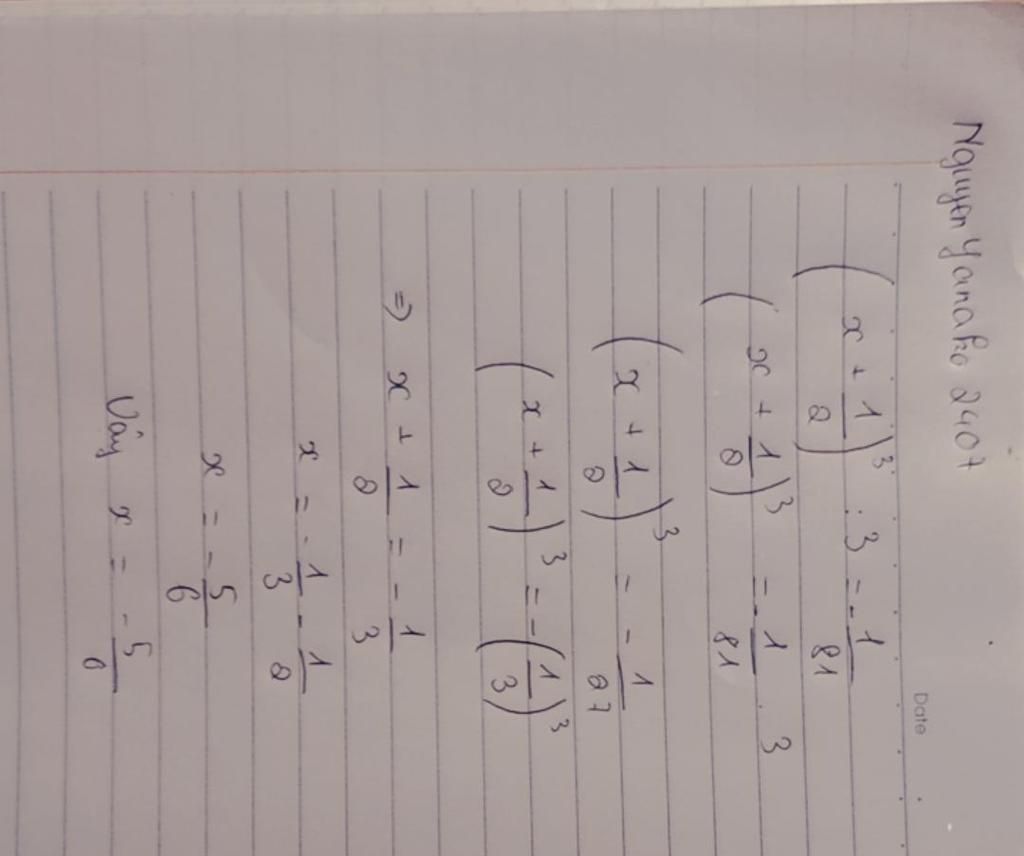 Nguyen Yanako 2407
Date
(x + 1/2)³ : 3 = - 1/81
(x + 1/2)³ = - 1/81 . 3
(x + 1/2)³ = - 1/27
(x + 1/2)³ = - (1/3)³
=> x + 1/2 = - 1/3
x = - 1/3 - 1/2
x = - 5/6
Vậy x = - 5/6